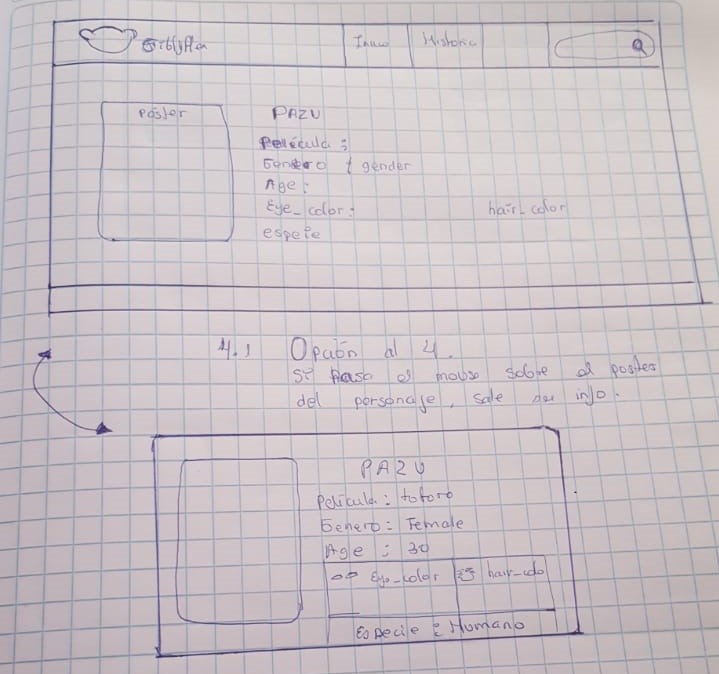 Inicio Historia
Póster
PAZU
Película :
Genero / gender
Age :
Eye_color : hair_color
especie
4.1 Opción al 4.
Si paso el mouse sobre el poster
del personaje, sale su info.
PAZU
Película : totoro
Genero : Female
Age : 30
Eye_color hair_colo
Especie : Humano